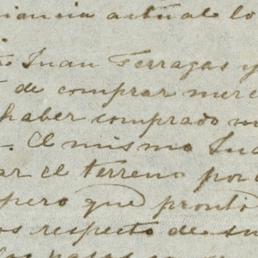 actual lo
Juan Terragas y
de comprar merc
haber comprado m
El mismo Jua
ar el terreno por
pero que pronto
os respecto de su